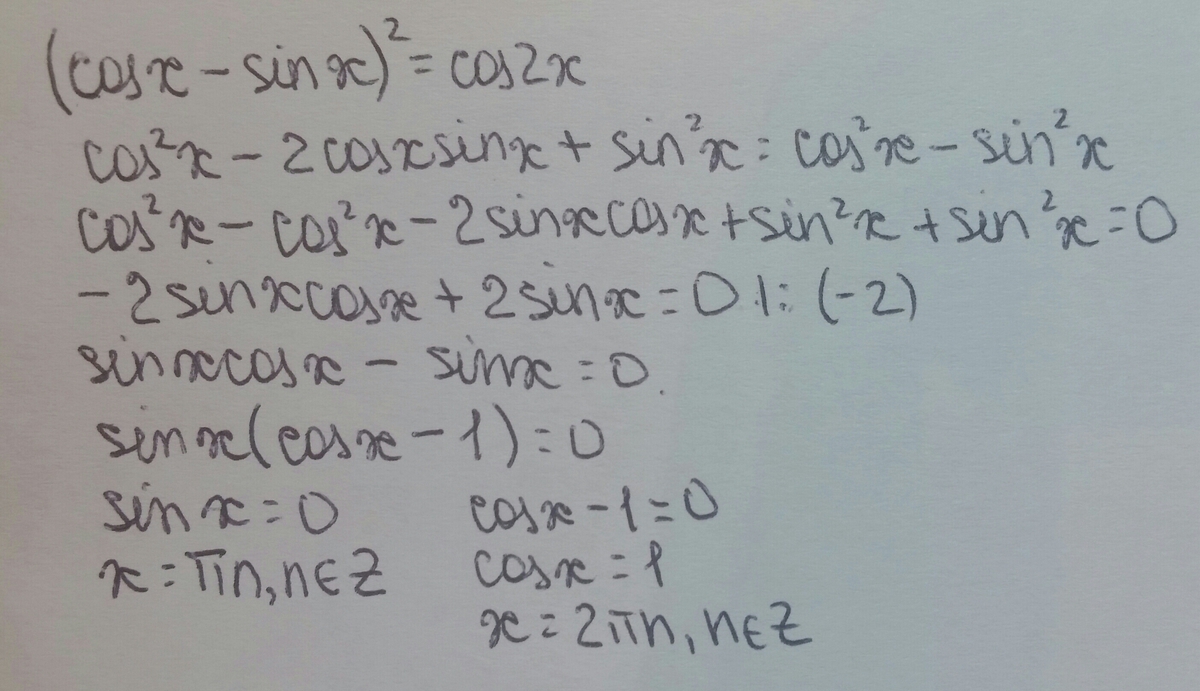 (cosx - sinx)² = cos2x
cos²x - 2cosxsinx + sin²x = cos²x - sin²x
cos²x - cos²x - 2sinxcosx + sin²x + sin²x = 0
- 2sinxcosx + 2sinx = 0 |: (-2)
sinxcosx - sinx = 0
sinx(cosx - 1) = 0
sinx = 0 cosx - 1 = 0
x = πn, n∈Z cosx = 1
x = 2πn, n∈Z